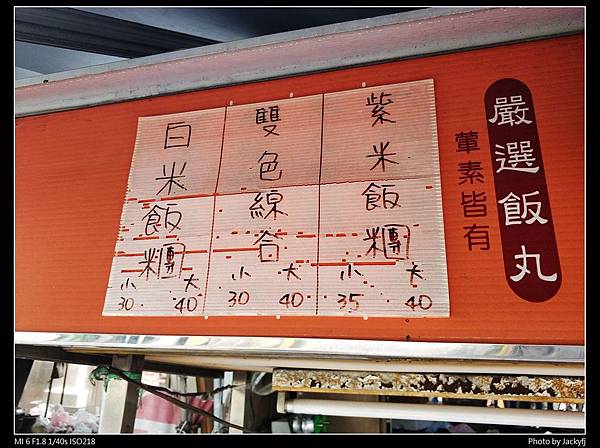 嚴選飯丸
葷素皆有
紫米飯糰
小 大
35 40
雙色線合
小 大
30 40
白米飯糰
小 大
30 40
MI 6 F1.8 1/40s ISO218
Photo by Jackyfj